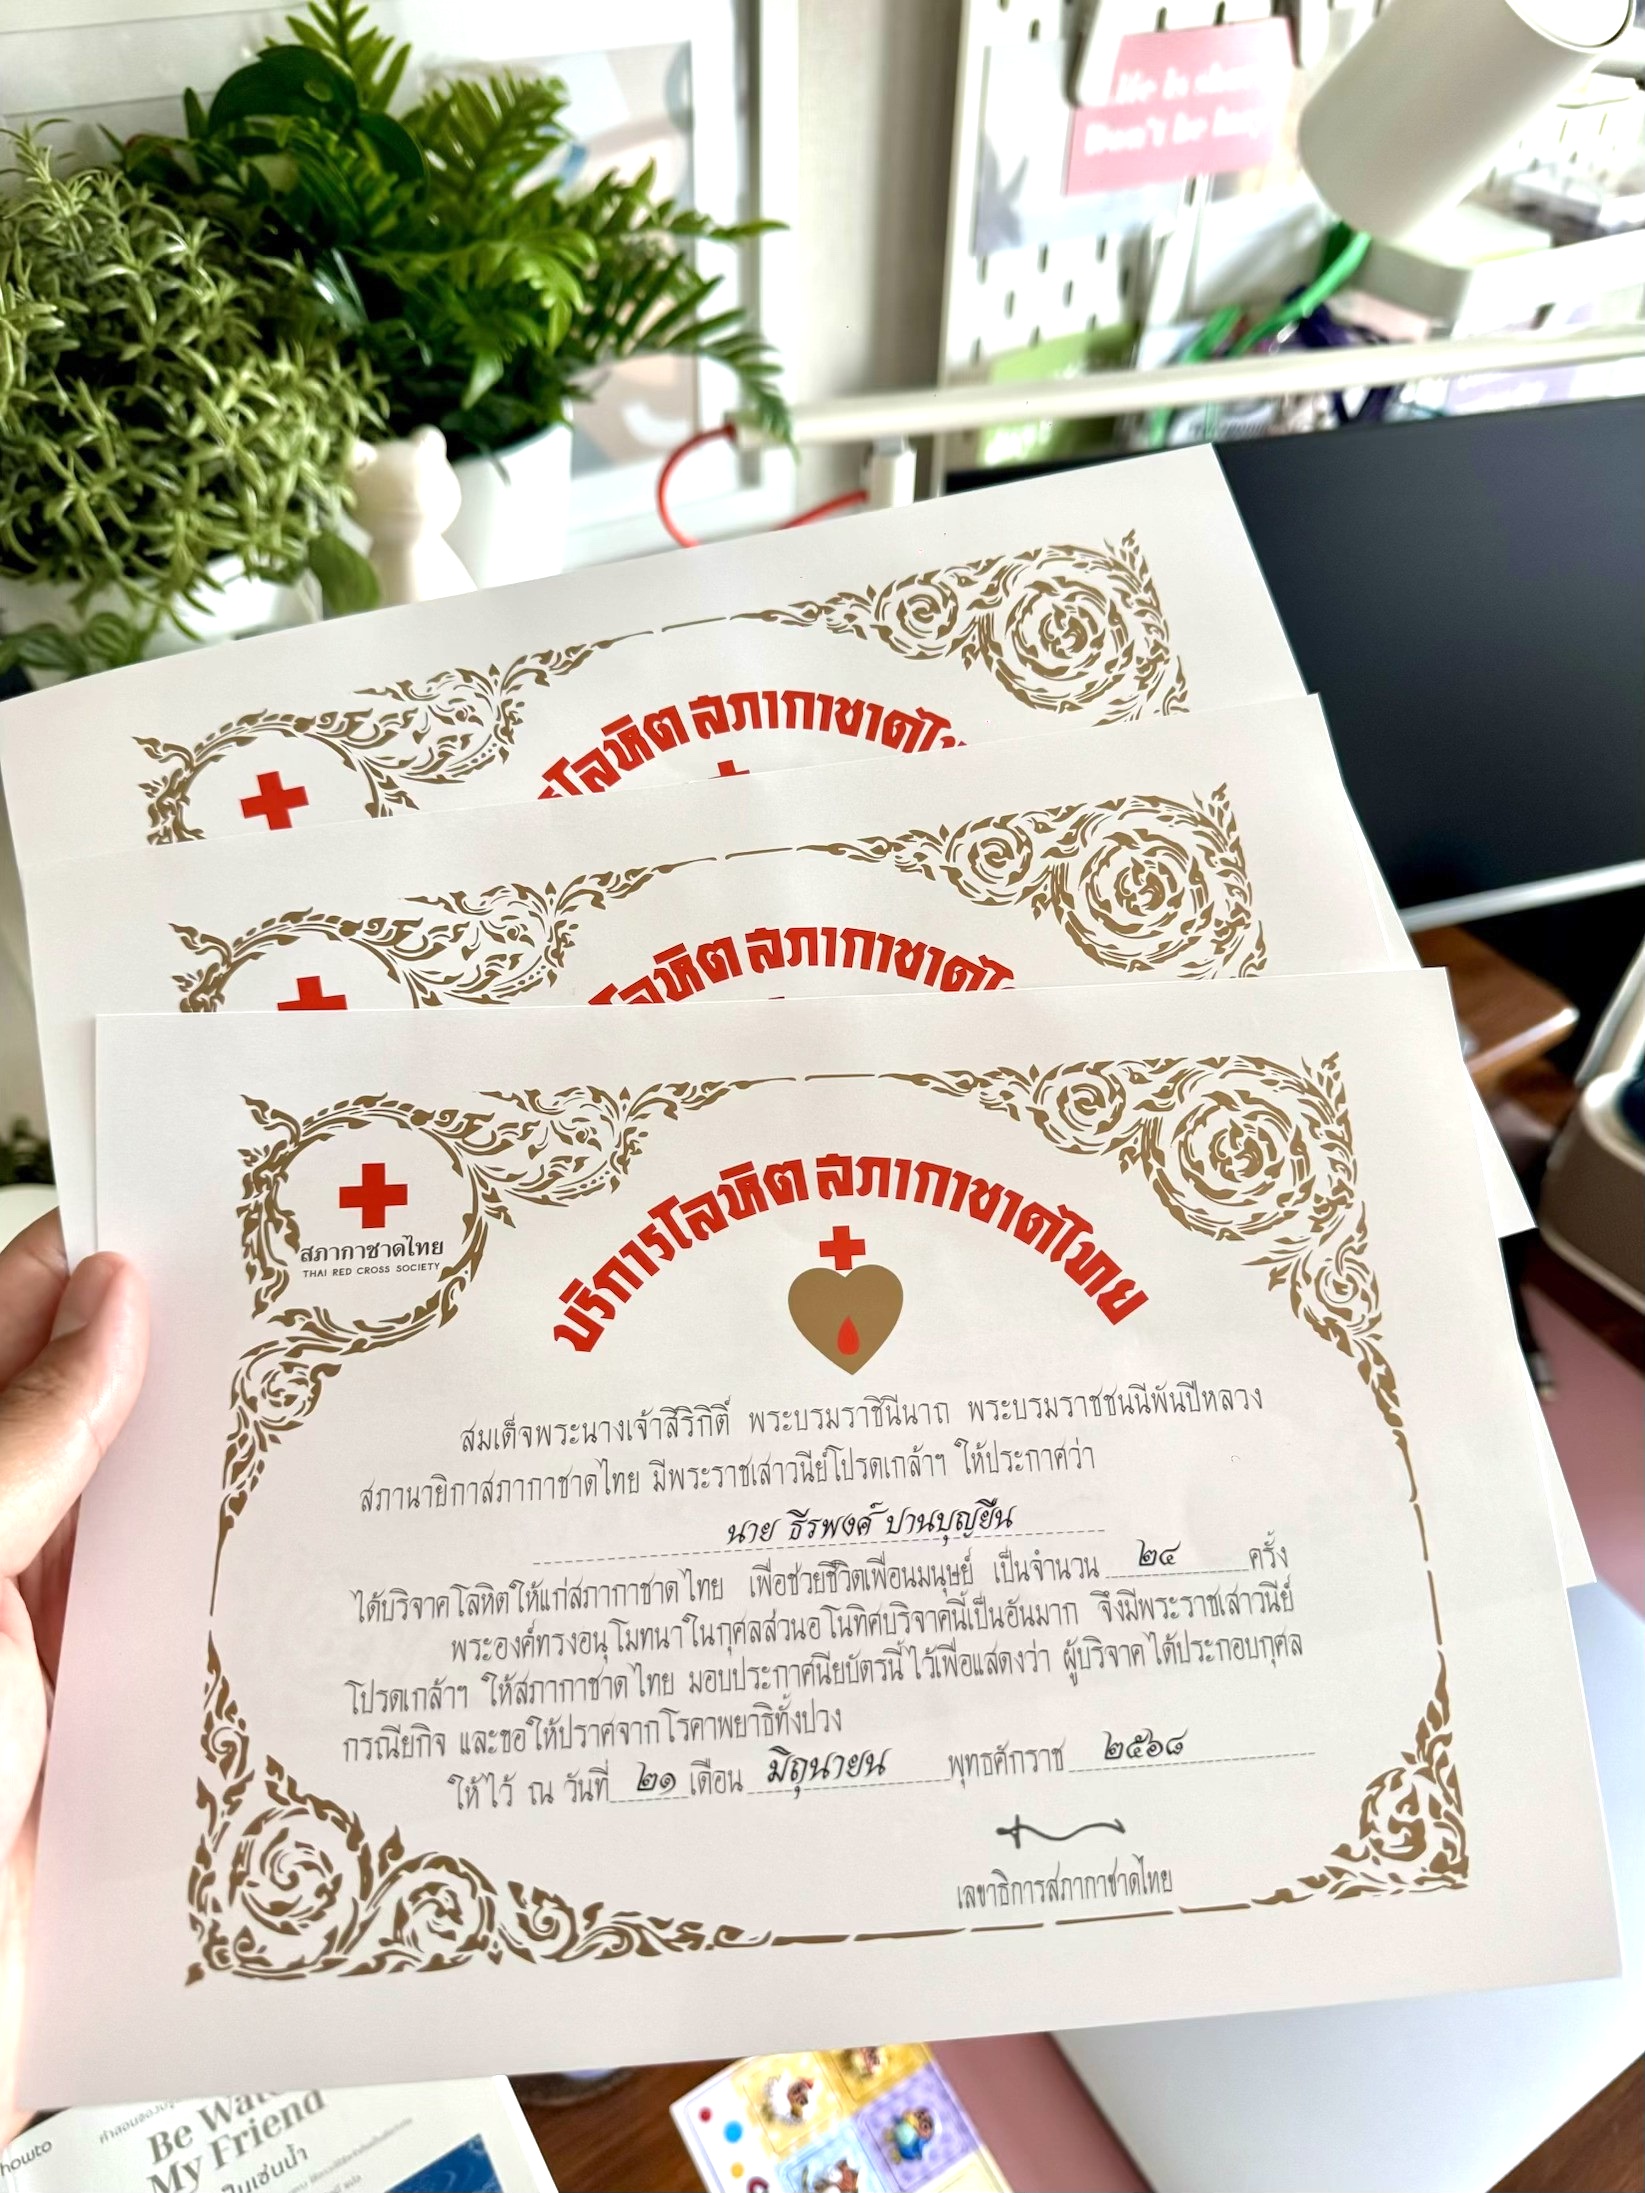 โลหิต สภากาชาดไ
โลหิต สภากาชาดไ
สภากาชาดไทย
THAI RED CROSS SOCIETY
บริการโลหิต สภากาชาดไทย
สมเด็จพระนางเจ้าสิริกิติ์ พระบรมราชินีนาถ พระบรมราชชนนีพันปีหลวง
สภานายิกาสภากาชาดไทย มีพระราชเสาวนีย์โปรดเกล้าฯ ให้ประกาศว่า
นาย ธีรพงศ์ ปานบุญยืน
ได้บริจาคโลหิตให้แก่สภากาชาดไทย เพื่อช่วยชีวิตเพื่อนมนุษย์ เป็นจำนวน ๒๔ ครั้ง
พระองค์ทรงอนุโมทนาในกุศลส่วนอโนทิศบริจาคนี้เป็นอันมาก จึงมีพระราชเสาวนีย์
โปรดเกล้าฯ ให้สภากาชาดไทย มอบประกาศนียบัตรนี้ไว้เพื่อแสดงว่า ผู้บริจาคได้ประกอบกุศล
กรณียกิจ และขอให้ปราศจากโรคาพยาธิทั้งปวง
ให้ไว้ ณ วันที่ ๒๑ เดือน มิถุนายน พุทธศักราช ๒๕๖๘
เลขาธิการสภากาชาดไทย
howto
Be Wat
My Friend